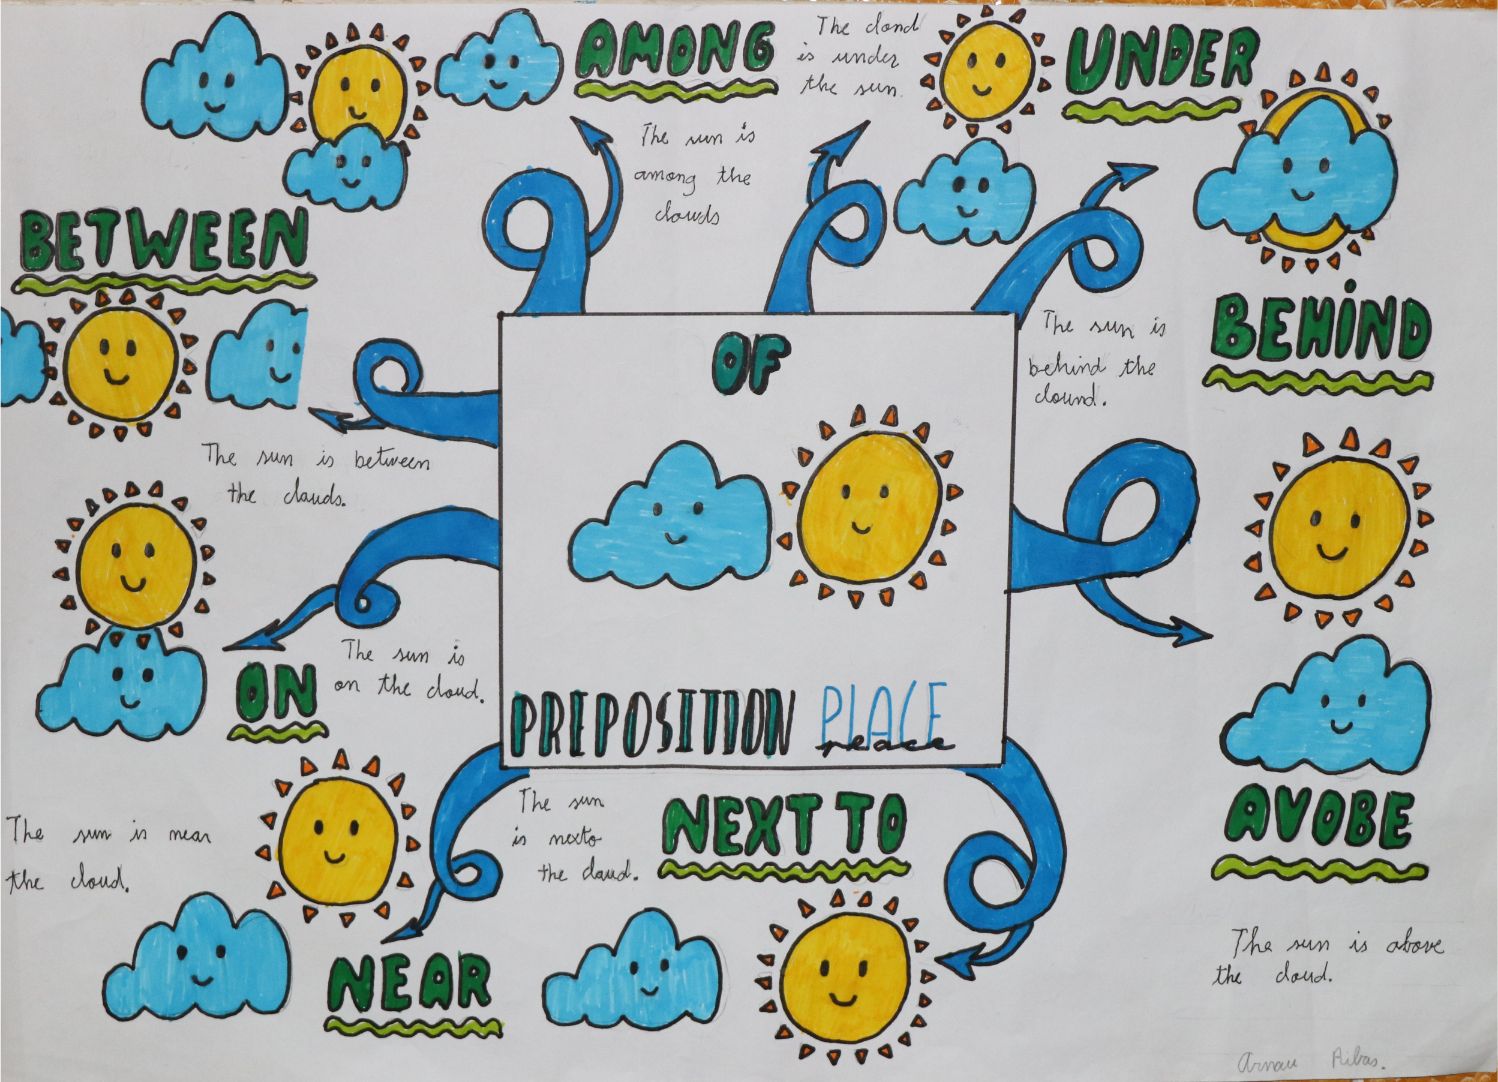 AMONG
The sun is
among the
clouds
The clond
is under
the sun.
UNDER
BETWEEN
The sun is between
the clauds.
The sun is
behind the
clound.
BEHIND
OF
PREPOSITION PLACE
peace
The sun is
on the cloud.
ON
The sun is near
the cloud.
NEAR
The sun
is nexto
the claud.
NEXT TO
AVOBE
The sun is above
the cloud.
Arnau Ribas.